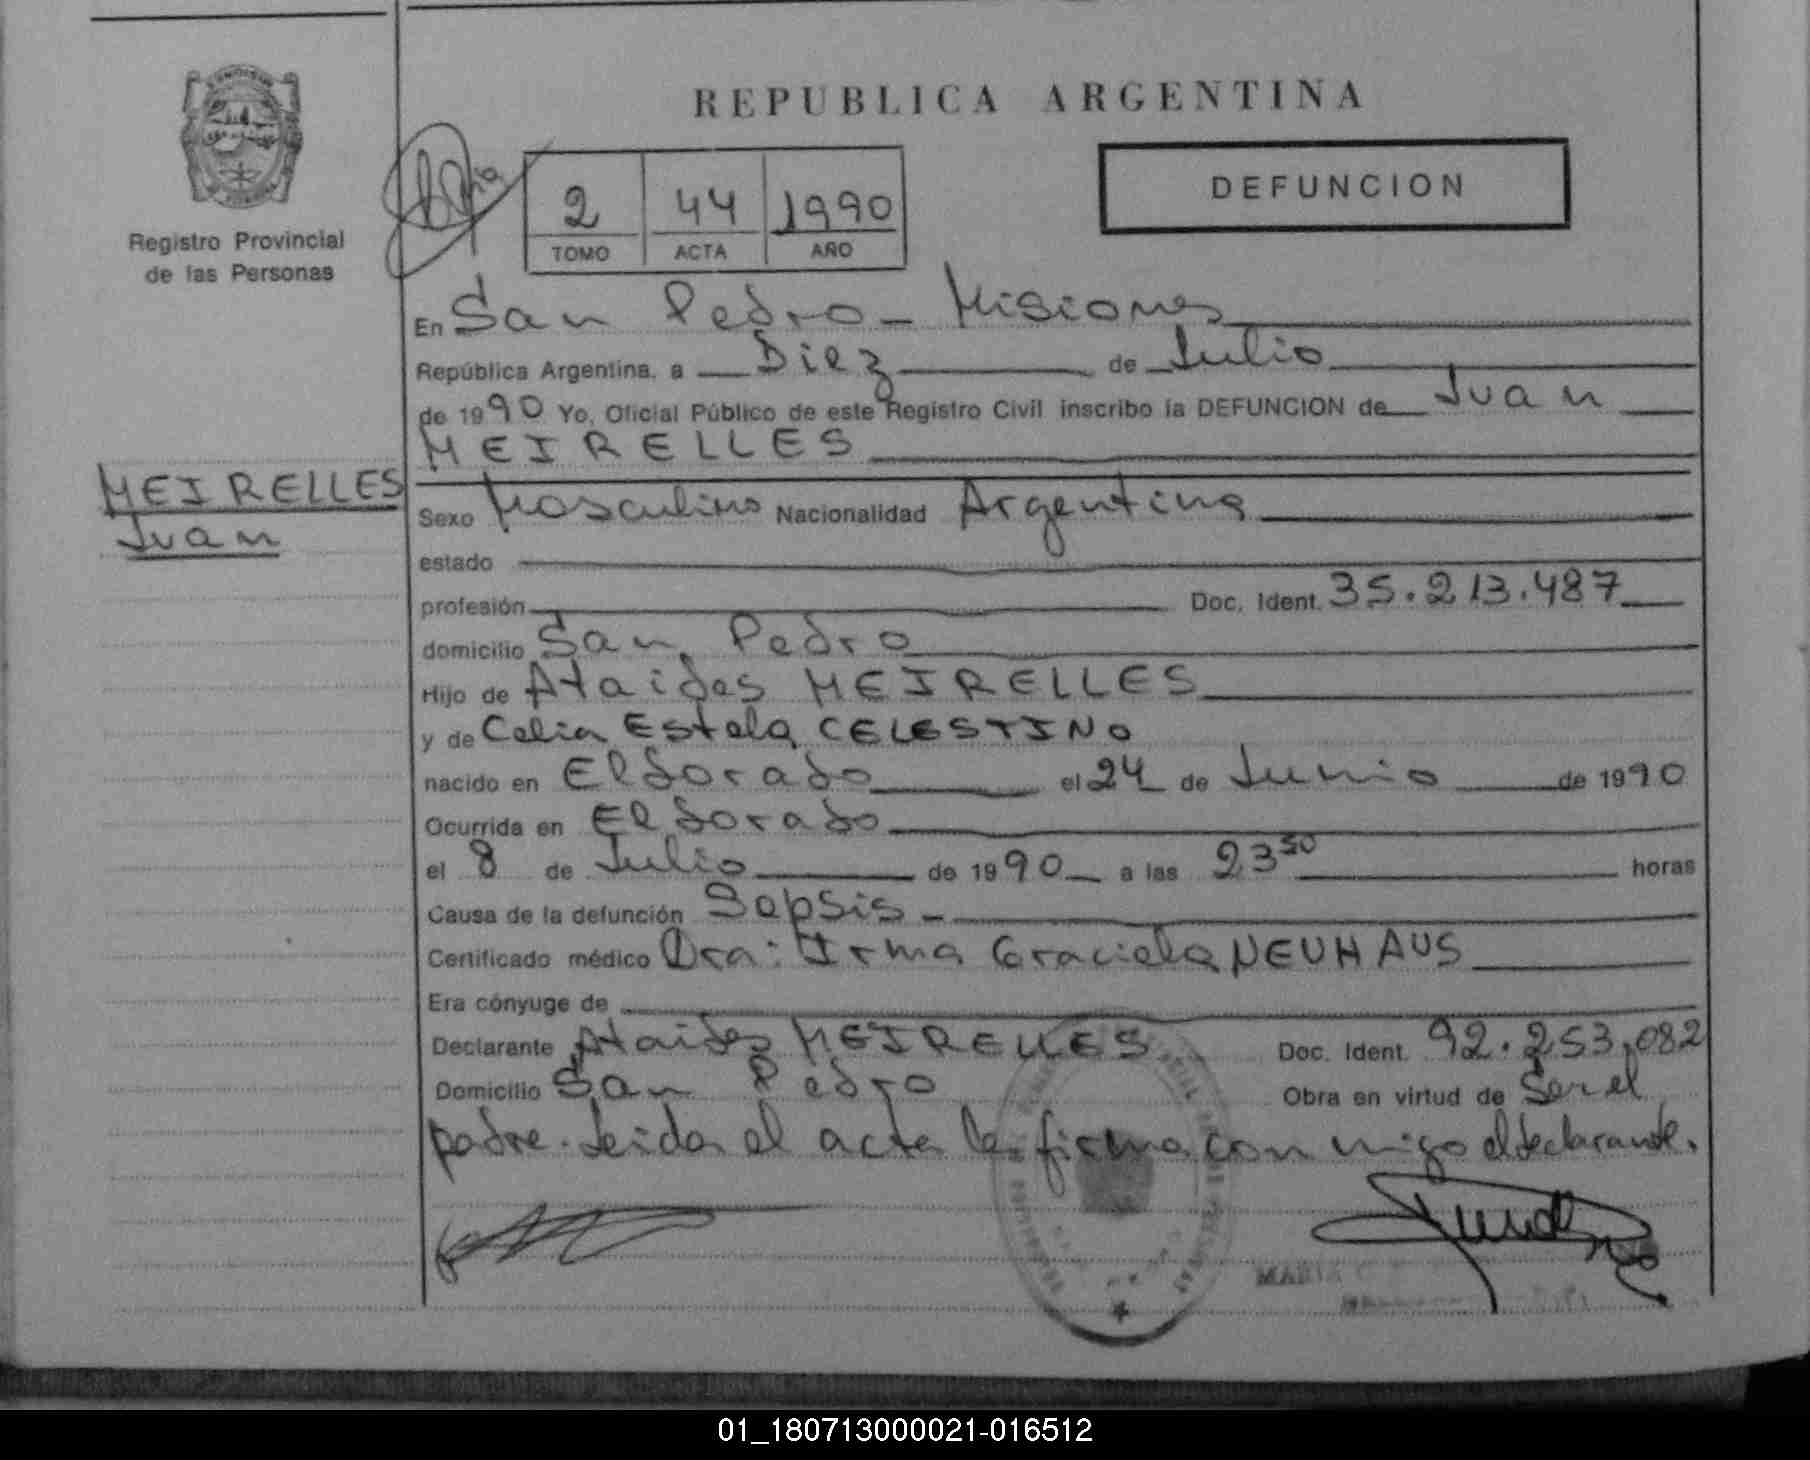 REPUBLICA ARGENTINA
DEFUNCION
Registro Provincial
de las Personas
2 44 1990
TOMO ACTA AÑO
En San Pedro - Misiones
República Argentina, a Diez de Julio
de 1990 Yo, Oficial Público de este Registro Civil inscribo la DEFUNCION de Juan
MEIRELLES
MEIRELLES
Juan
Sexo Masculino Nacionalidad Argentina
estado
profesión Doc. Ident. 35.213.487
domicilio San Pedro
Hijo de Ataides MEIRELLES
y de Celia Estela CELESTINO
nacido en Eldorado el 24 de Junio de 1990
Ocurrida en Eldorado
el 8 de Julio de 1990 a las 23 50 horas
Causa de la defunción Sepsis -
Certificado médico Dra: Irma Graciela NEUHAUS
Era cónyuge de
Declarante Ataides MEIRELLES Doc. Ident. 92.253.082
Domicilio San Pedro Obra en virtud de Ser el
padre. Leida el acta la firma con migo el declarante.
MARIA
01_180713000021-016512